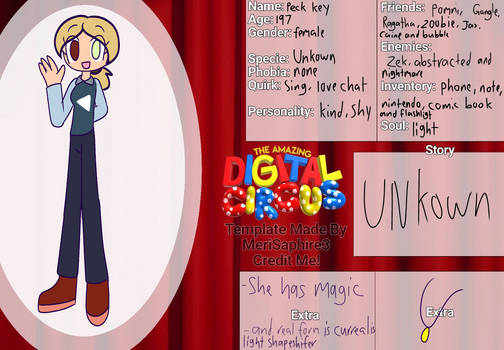 Name: Peck key
Age: 197
Gender: female
Specie: Unkown
Phobia: none
Quirk: Sing, love chat
Personality: kind, shy
Friends: Pomni, Gangle,
Ragatha, zoobie, Jax.
Caine and bubble
Enemies:
Zek. abstracted and
nightmare
Inventory: phone, note,
nintendo, comic book
and flashligt
Soul: light
THE AMAZING
DIGITAL
CIRCUS
Template Made By
MeriSaphire3
Credit Me!
Story
UNkown
-She has magic
Extra
-and real form is currealis
light shapeshifer
Extra